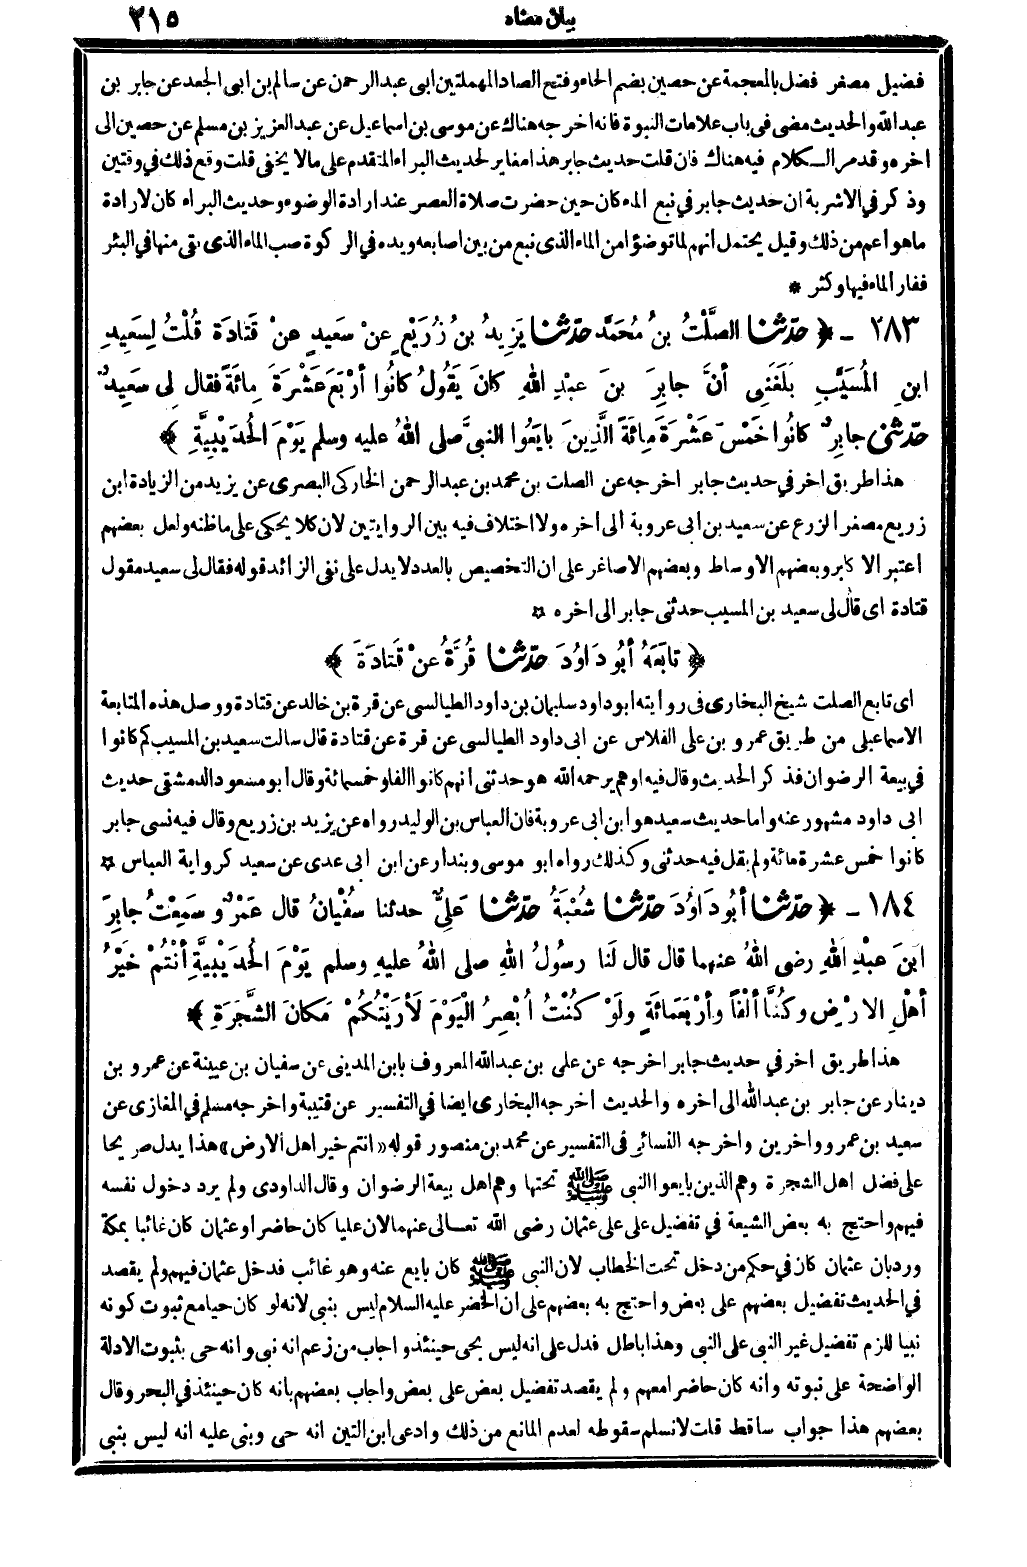 بيان معناه ٢١٥
فضيل مصغر فضل بالمعجمة عن حصين بضم الحاء وفتح الصاد المهملتين ابى عبد الرحمن عن سالم بن ابى الجعد عن جابر بن
عبد الله والحديث مضى فى باب علامات النبوة فانه اخرجه هناك عن موسى بن اسماعيل عن عبد العزيز بن مسلم عن حصين الى
اخره وقد مر الكلام فيه هناك فان قلت حديث جابر هذا مغاير لحديث البراء المتقدم على مالا يخفى قلت وقع ذلك في وقتين
وذكر في الاشربة ان حديث جابر في نبع الماء كان حين حضرت صلاة العصر عند ارادة الوضوء وحديث البراء كان لارادة
ما هو أعم من ذلك وقيل يحتمل أنهم لما توضؤا من الماء الذى نبع من بين اصابعه ويده في الركوة صب الماء الذى بقى منها في البئر
ففار الماء فيها وكثر *
١٨٣ - ﴿ حدّثنا الصَّلْتُ بنُ مُحَمَّد حدّثنا يَزِيدُ بنُ زُرَيْعٍ عنْ سَعِيدٍ عنْ قَتَادَةَ قُلْتُ لِسَعِيدِ
ابنِ الْمُسَيَّبِ بَلَغَنِى أنَّ جابِرَ بنَ عبْدِ اللهِ كانَ يَقُولُ كانُوا أرْبَعَ عَشْرَةَ مِائَةً فقال لِى سَعِيدٌ
حدّثنى جابِرٌ كانُوا خَمْسَ عَشْرَةَ مِائَةً الَّذِينَ بايَعُوا النبيَّ صلى اللهُ عليه وسلم يَوْمَ الحُدَيْبِيَةِ ﴾
هذا طريق اخر في حديث جابر اخرجه عن الصلت بن محمد بن عبد الرحمن الخاركى البصرى عن يزيد من الزيادة ابن
زريع مصغر الزرع عن سعيد بن ابى عروبة الى اخره ولا اختلاف فيه بين الروايتين لان كلا يحكى على ما ظنه ولعل بعضهم
اعتبر الاكابر وبعضهم الاوساط وبعضهم الاصاغر على ان التخصيص بالعدد لا يدل على نفى الزائد قوله فقال لى سعيد مقول
قتادة اى قال لى سعيد بن المسيب حدثنى جابر الى اخره *
﴿ تابَعَهُ أبُو دَاوُدَ حدّثنا قُرَّةُ عنْ قَتَادَةَ ﴾
اى تابع الصلت شيخ البخارى فى روايته ابو داود سليمان بن داود الطيالسى عن قرة بن خالد عن قتادة ووصل هذه المتابعة
الاسماعيلى من طريق عمرو بن على الفلاس عن ابى داود الطيالسى عن قرة عن قتادة قال سالت سعيد بن المسيب كم كانوا
في بيعة الرضوان فذكر الحديث وقال فيه اوهم يرحمه الله هو حدثنى انهم كانوا الفا وخمسمائة وقال أبو مسعود الدمشقى حديث
ابى داود مشهور عنه واما حديث سعيد هو ابن ابى عروبة فان العباس بن الوليد رواه عن يزيد بن زريع وقال فيه نسى جابر
كانوا خمس عشرة مائة ولم يقل فيه حدثنى وكذلك رواه ابو موسى وبندار عن ابن ابى عدى عن سعيد كرواية العباس *
١٨٤ - ﴿ حدّثنا أبُو دَاوُدَ حدّثنا شُعْبَةُ حدّثنا عَلِيٌّ حدثنا سفْيانُ قال عَمْرٌو سَمِعْتُ جابِرَ
ابنَ عبْدِ اللهِ رضى اللهُ عنهما قال قال لَنا رسُولُ اللهِ صلى اللهُ عليهِ وسلم يَوْمَ الحُدَيْبِيَةِ أنْتُمْ خَيْرُ
أهْلِ الارْضِ وكُنَّا ألْفاً وأرْبَعَمائَةٍ ولَوْ كُنْتُ اُبْصِرُ الْيَوْمَ لَأرَيْتُكُمْ مَكانَ الشَّجَرَةِ ﴾
هذا طريق اخر في حديث جابر اخرجه عن على بن عبد الله المعروف بابن المدينى عن سفيان بن عيينة عن عمرو بن
دينار عن جابر بن عبد الله الى اخره والحديث أخرجه البخارى ايضا في التفسير عن قتيبة واخرجه مسلم في المغازى عن
سعيد بن عمرو واخرين واخرجه النسائى فى التفسير عن محمد بن منصور قوله «انتم خير اهل الارض» هذا يدل صريحا
على فضل اهل الشجرة وهم الذين بايعوا النبى ﷺ تحتها وهم اهل بيعة الرضوان وقال الداودى ولم يرد دخول نفسه
فيهم واحتج به بعض الشيعة في تفضيل على على عثمان رضى الله تعالى عنهما لان عليا كان حاضرا وعثمان كان غائبا بمكة
ورد بان عثمان كان في حكم من دخل تحت الخطاب لان النبى ﷺ كان بايع عنه وهو غائب فدخل عثمان فيهم ولم يقصد
في الحديث تفضيل بعضهم على بعض واحتج به بعضهم على ان الخضر عليه السلام ليس بنبى لانه لو كان حيا مع ثبوت كونه
نبيا للزم تفضيل غير النبى على النبى وهذا باطل فدل على انه ليس بحى حينئذ واجاب من زعم انه نبى وانه حى بثبوت الادلة
الواضحة على نبوته وانه كان حاضرا معهم ولم يقصد تفضيل بعض على بعض واجاب بعضهم بانه كان حينئذ في البحر وقال
بعضهم هذا جواب ساقط قلت لا نسلم سقوطه لعدم المانع من ذلك وادعى ابن التين انه حى وبنى عليه انه ليس بنبى